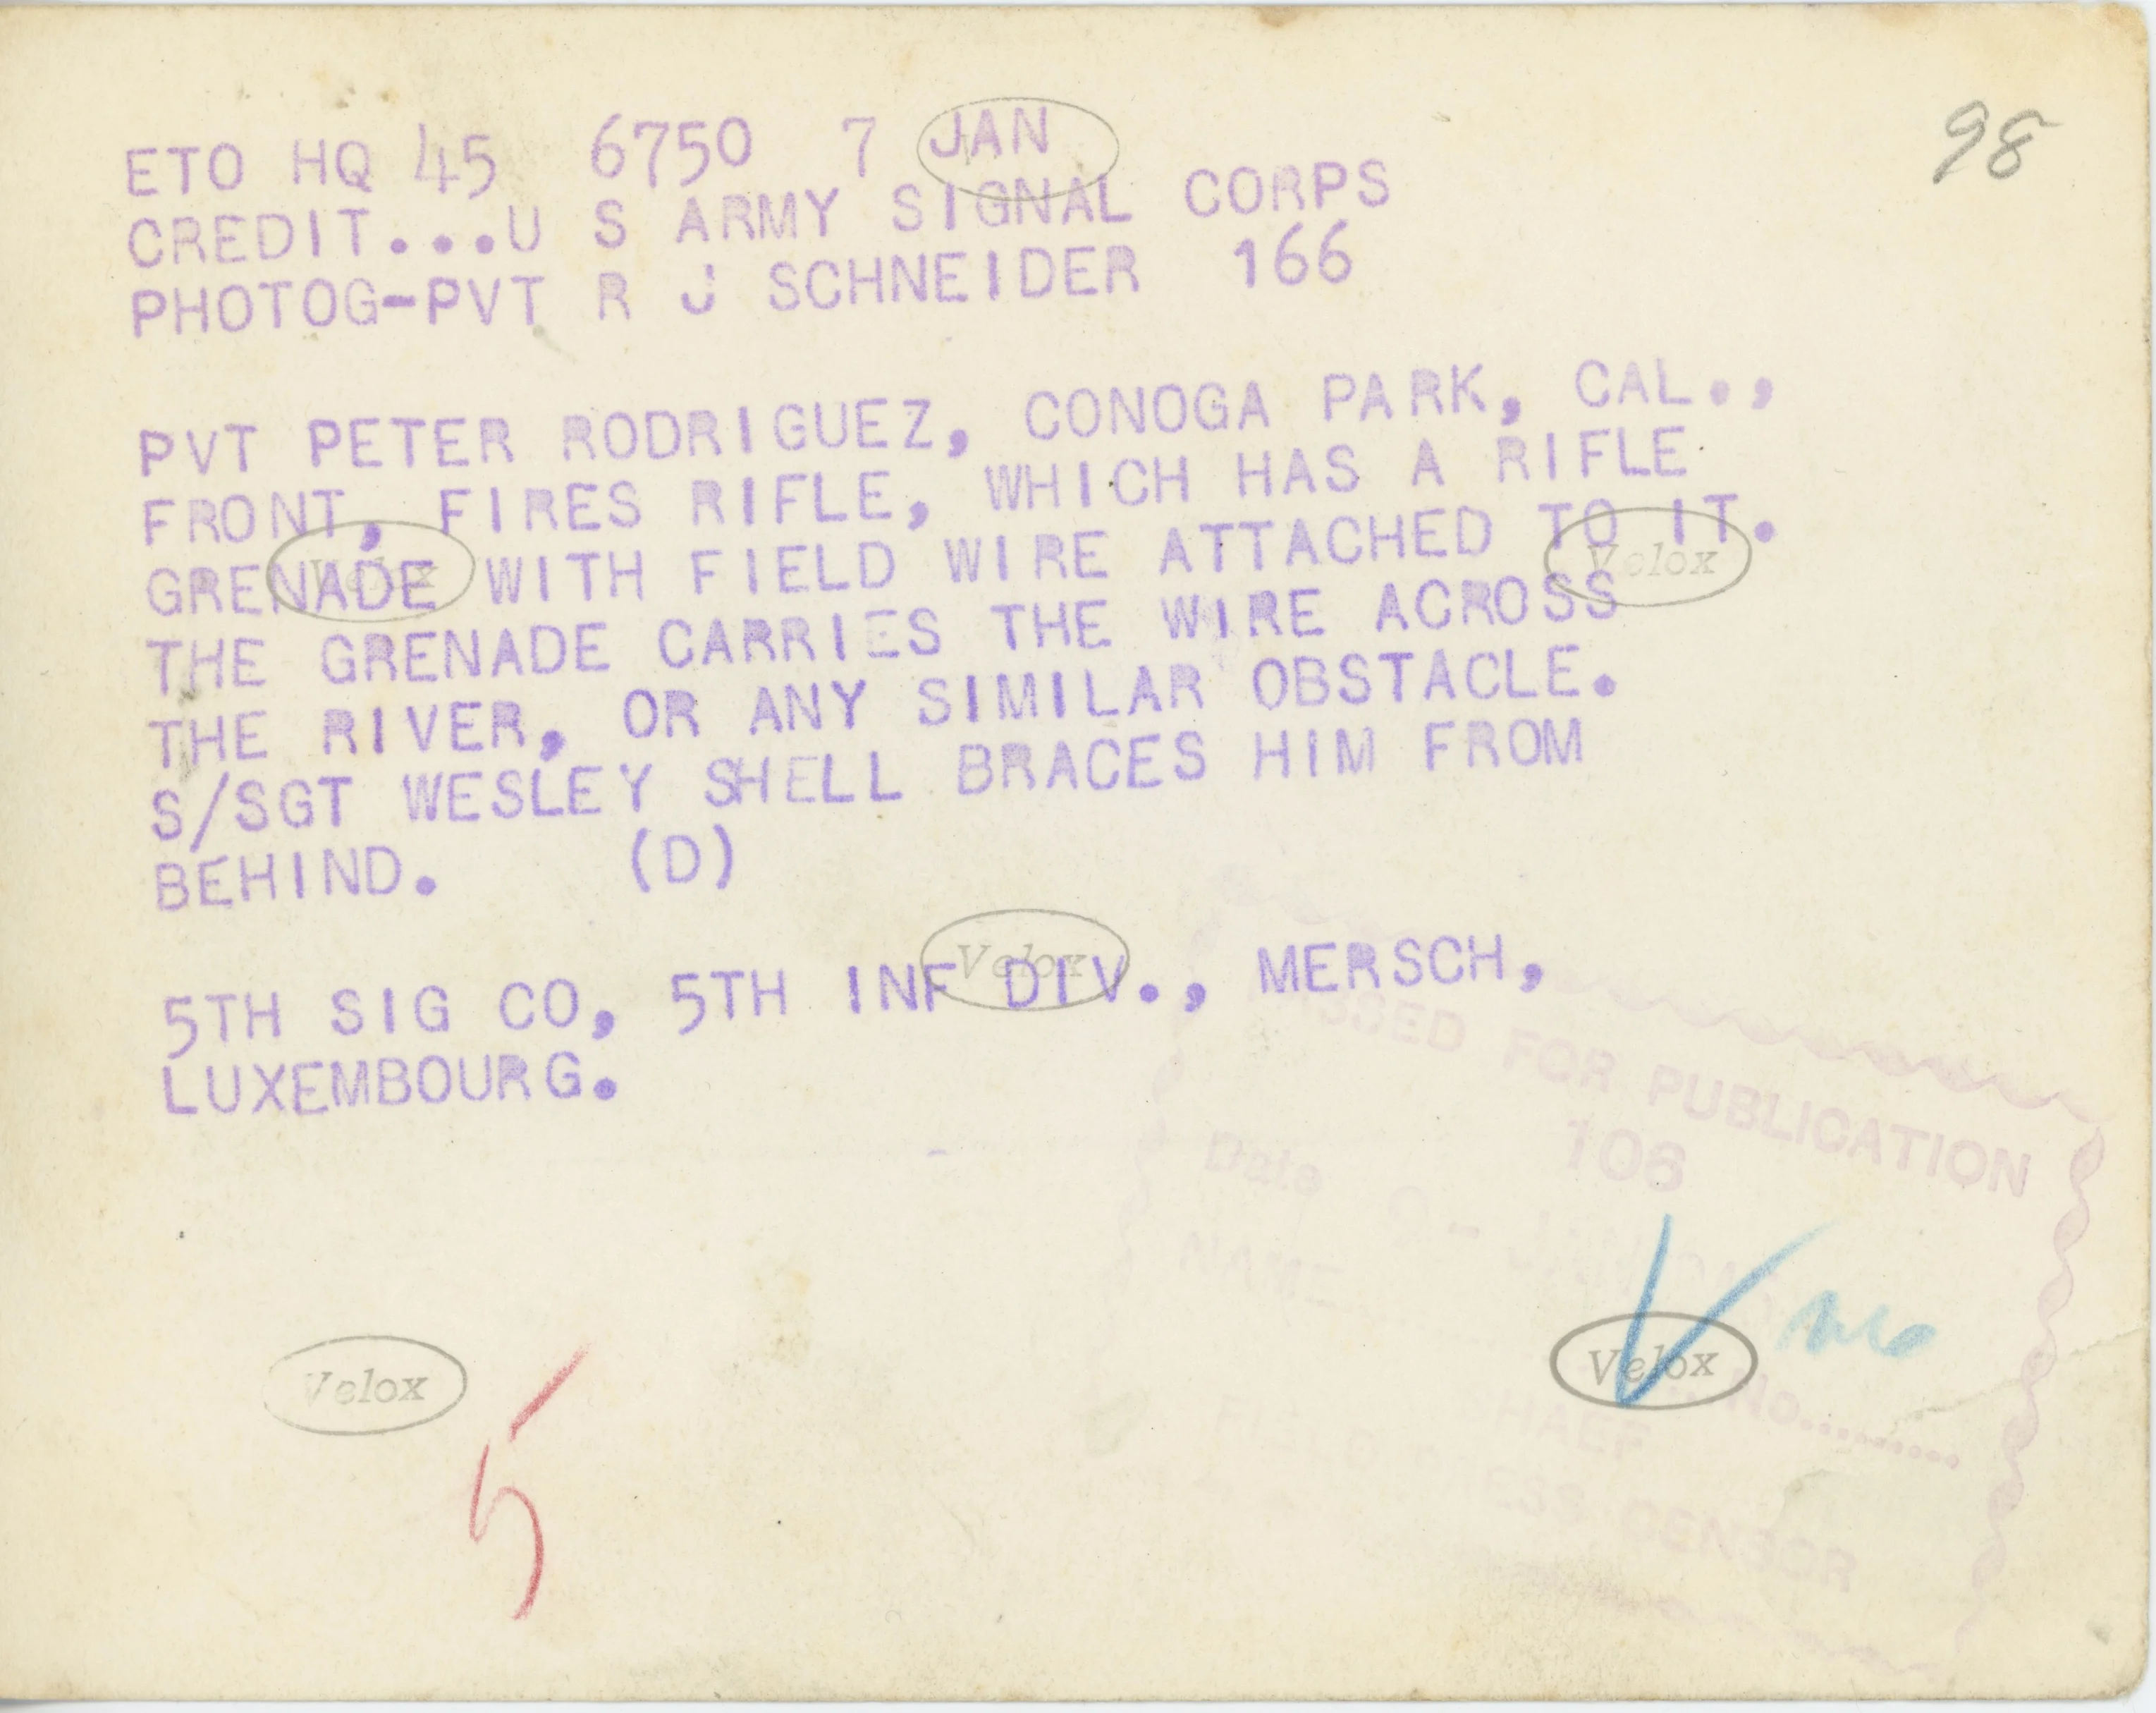 98
ETO HQ 45 6750 7 JAN
CREDIT...U S ARMY SIGNAL CORPS
PHOTOG-PVT R J SCHNEIDER 166
PVT PETER RODRIGUEZ, CONOGA PARK, CAL.,
FRONT, FIRES RIFLE, WHICH HAS A RIFLE
GRENADE WITH FIELD WIRE ATTACHED TO IT.
Velox
Velox
THE GRENADE CARRIES THE WIRE ACROSS
THE RIVER, OR ANY SIMILAR OBSTACLE.
S/SGT WESLEY SHELL BRACES HIM FROM
BEHIND. (D)
Velox
5TH SIG CO, 5TH INF DIV., MERSCH,
LUXEMBOURG.
PASSED FOR PUBLICATION
106
Date
NAME
Velox
Velox
No..........
SHAEF
FIELD PRESS CENSOR
5